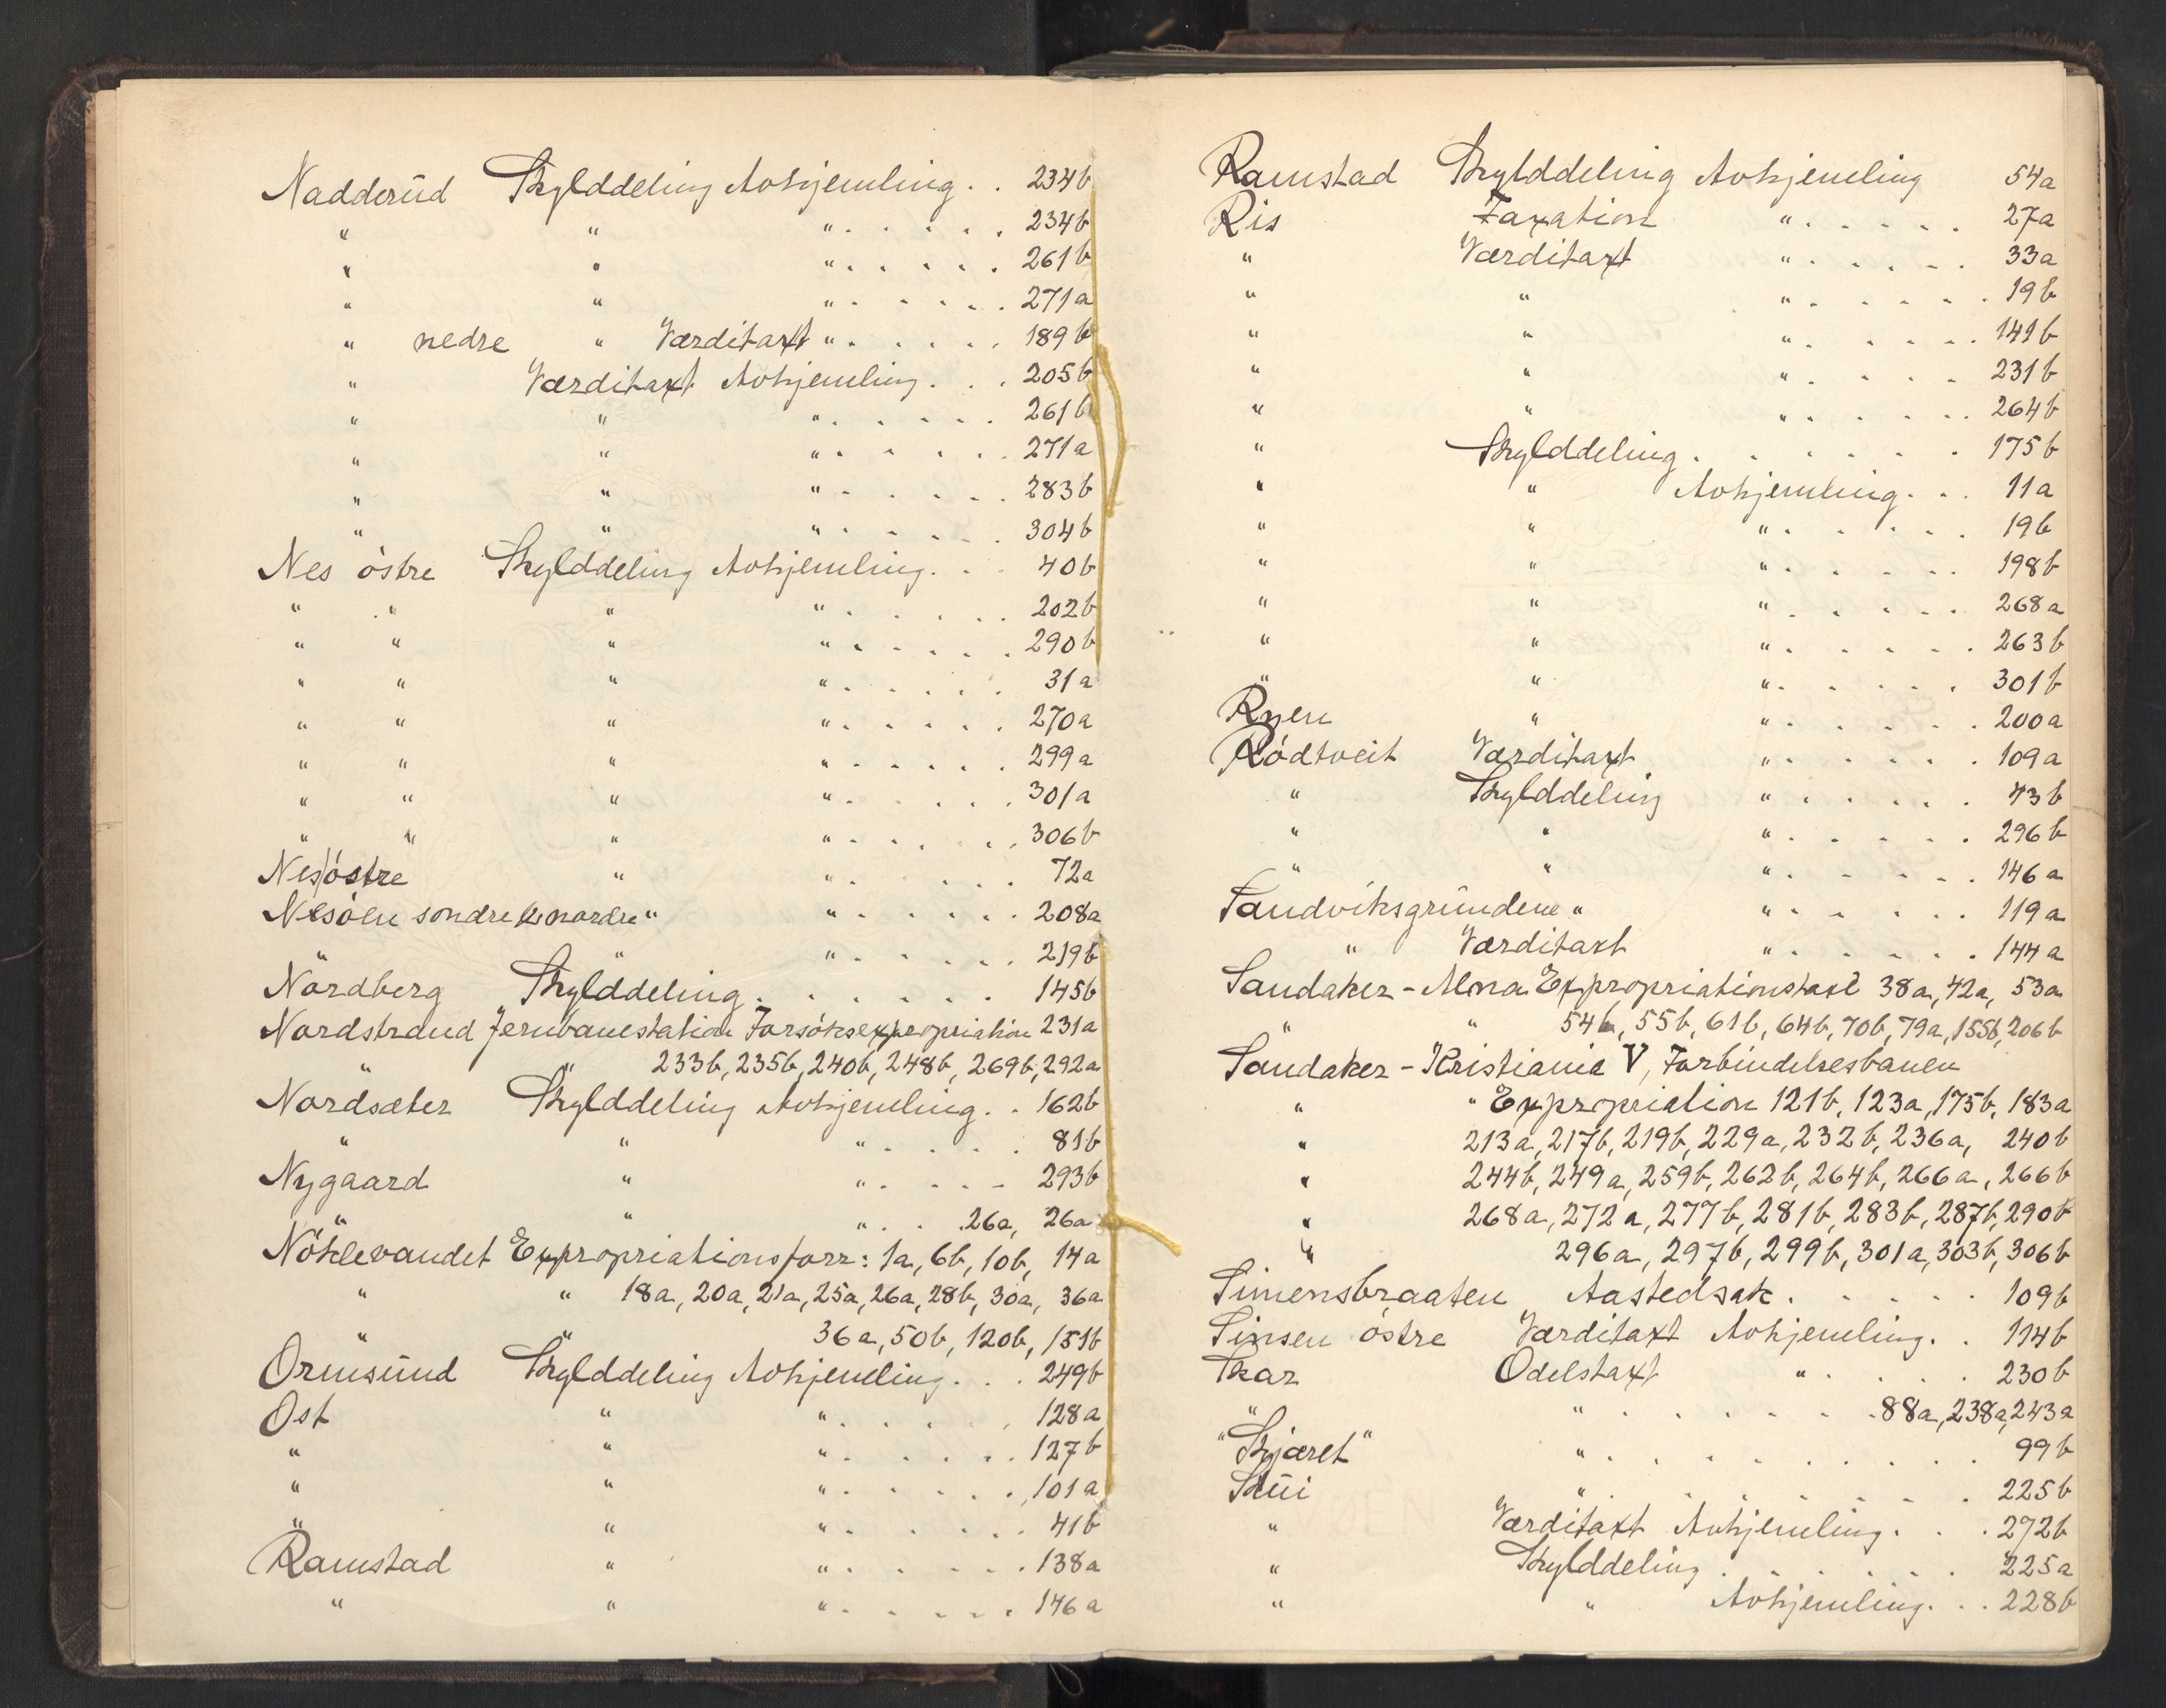 Nadderud Skylddeling Avhjemling . . 234b
" " " . . . . . 234b
" " " . . . . . 261b
" " " . . . . . 271a
" nedre " Værditaxt " . . . . . 189b
" Værditaxt Avhjemling . . . 205b
" " " . . . . . 261b
" " " . . . . . 271a
" " " . . . . . 283b
" " " . . . . . 304b
Nes östre Skylddeling Avhjemling . . . 40b
" " " " . . . . . 202b
" " " " . . . . . 290b
" " " " . . . . . 31a
" " " " . . . . . 270a
" " " " . . . . . 299a
" " " " . . . . . 301a
" " " " . . . . . 306b
Nes östre " " . . . . . 72a
Nesöen söndre & nordre " " . . . . . 208a
" " " . . . . . 219b
Nordberg Skylddeling . . . . . . 145b
Nordstrand Jernbanestation Forsöksexpropriation 231a
" " 233b, 235b, 240b, 248b, 269b, 292a
Nordsæter Skylddeling Avhjemling . . 162b
" " " . . . . . 81b
Nygaard " " . . . . 293b
" " " . . . 26a, 26a
Nöklevandet Expropriationsforr: 1a, 6b, 10b, 14a
" " 18a, 20a, 21a, 25a, 26a, 28b, 30a, 36a
" " 36a, 50b, 120b, 151b
Ormsund Skylddeling Avhjemling . . . 249b
Ost " " . . . . . 128a
" " " . . . . . 127b
" " " . . . . . 101a
" " " . . . . . 41b
Ramstad " " . . . . . 138a
" " " . . . . . 146a
Ramstad Skylddeling Avhjemling 54a
Ris Taxation " . . . . . 27a
" Værditaxt " . . . . . 33a
" " " . . . . . 19b
" " " . . . . . 141b
" " " . . . . . 231b
" " " . . . . . 264b
" Skylddeling . . . . . . . 175b
" " Avhjemling . . . 11a
" " " . . . . . 19b
" " " . . . . . 198b
" " " . . . . . 268a
" " " . . . . . 263b
" " " . . . . . 301b
Ryen " " . . . . . 200a
Rödtveit Værditaxt " . . . . . 109a
" Skylddeling " . . . . . 43b
" " " . . . . . 296b
" " " . . . . . 146a
Sandviksgrundene " " . . . . . 119a
" Værditaxt " . . . . . 144a
Sandaker - Alna Expropriationstaxt 38a, 42a, 53a
" " 54b, 55b, 61b, 64b, 70b, 79a, 155b, 206b
Sandaker - Kristiania V, Forbindelsesbanen
" " Expropriation 121b, 123a, 175b, 183a
" 213a, 217b, 219b, 229a, 232b, 236a, 240b
" 244b, 249a, 259b, 262b, 264b, 266a, 266b
" 268a, 272a, 277b, 281b, 283b, 287b, 290b
" 296a, 297b, 299b, 301a, 303b, 306b
Simensbraaten Aastedsak . . . . . 109b
Sinsen östre Værditaxt Avhjemling . . 114b
Skar Odelstaxt " . . . . 230b
" " . . . . . . . 88a, 238a, 243a
"Skjæret" " . . . . . . . . . 99b
Skui " . . . . . . . . 225b
" Værditaxt Avhjemling . . . 272b
" Skylddeling . . . . . . 225a
" " Avhjemling . . . 228b